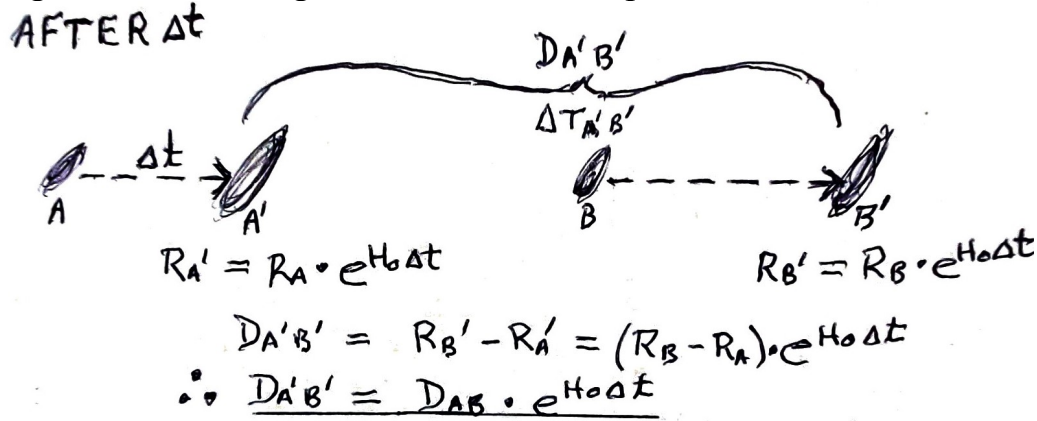 AFTER Δt
DA'B'
ΔTA'B'
Δt
A
A'
B
B'
RA' = RA · e^H₀Δt
RB' = RB · e^H₀Δt
DA'B' = RB' - RA' = (RB - RA) · e^H₀Δt
∴ DA'B' = DAB · e^H₀Δt